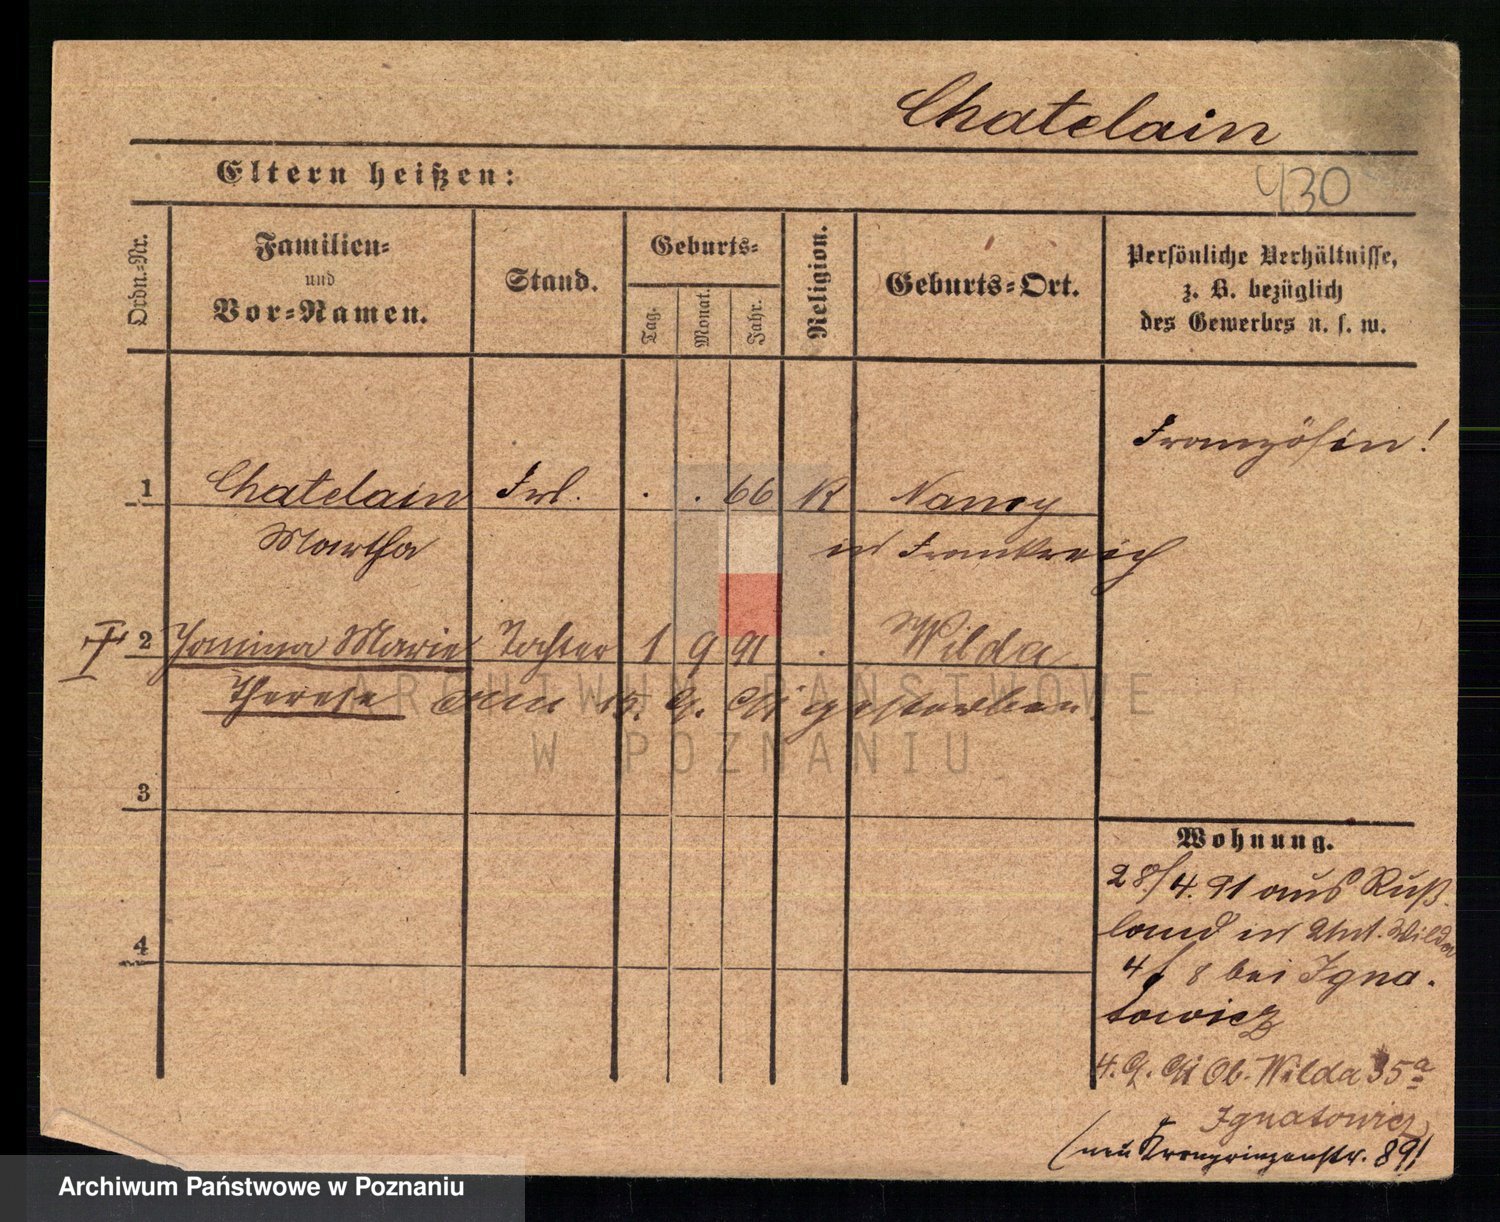 Chatelain
430
Eltern heißen:
Ordn.-Nr.
Familien-
und
Vor-Namen.
Stand.
Geburts-
Tag.
Monat.
Jahr.
Religion.
Geburts-Ort.
Persönliche Verhältnisse,
z. B. bezüglich
des Gewerbes u. s. w.
Französin!
1 Chatelain Frl. . . 66 K Nancy
Martha in Frankreich
2 Janina Marie Tochter 1 9 91 . Wilda
Therese am 15. 9. 91 gestorben.
3
4
Wohnung.
28/4. 91 aus Ruß-
land in Unt. Wilda
4/8 bei Igna-
towicz
4. 9. 91 Ob. Wilda 35a
Ignatowicz
(neu Kronprinzenstr. 89!
ARCHIWUM PAŃSTWOWE
W POZNANIU
Archiwum Państwowe w Poznaniu